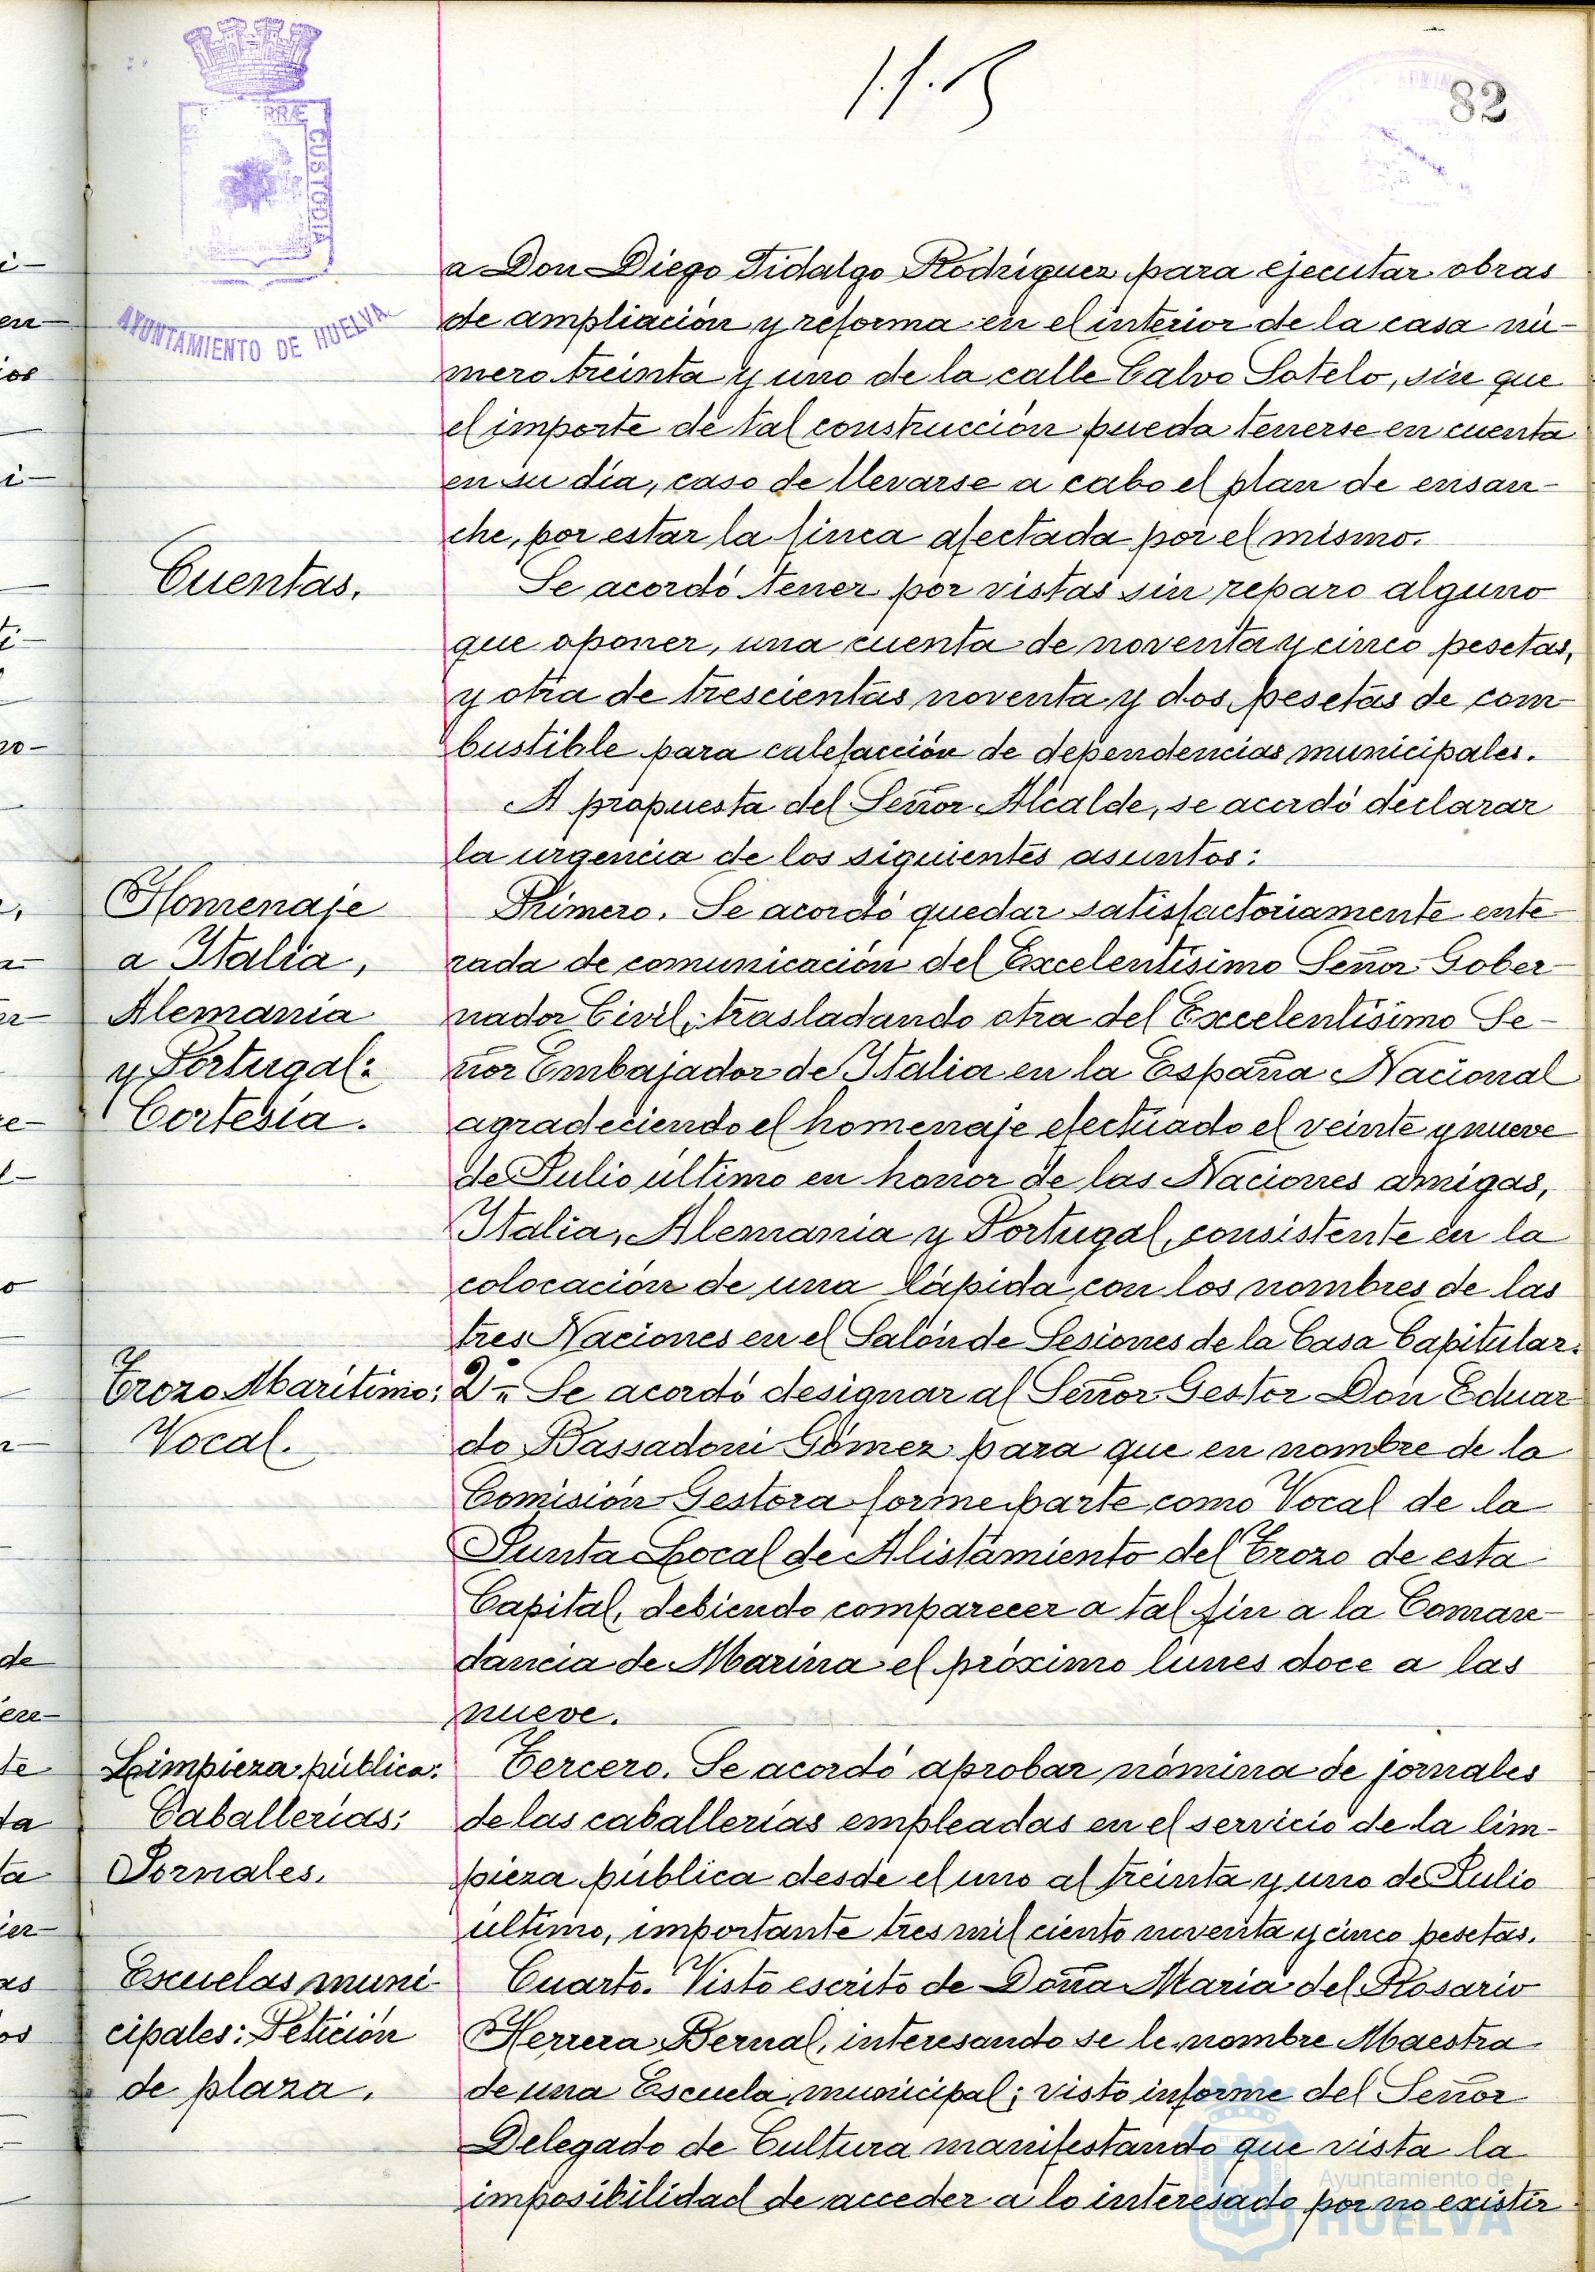 82
RRÆ
CUSTODIA
AYUNTAMIENTO DE HUELVA
a Don Diego Fidalgo Rodriguez para ejecutar obras
de ampliación y reforma en el interior de la casa nú-
mero treinta y uno de la calle Calvo Sotelo, sin que
el importe de tal construcción pueda tenerse en cuenta
en su día, caso de llevarse a cabo el plan de ensan-
che, por estar la finca afectada por el mismo.
Cuentas.
Se acordó tener por vistas sin reparo alguno
que oponer, una cuenta de noventa y cinco pesetas,
y otra de trescientas noventa y dos pesetas de com-
bustible para calefacción de dependencias municipales.
A propuesta del Señor Alcalde, se acordó declarar
la urgencia de los siguientes asuntos:
Homenaje
a Italia,
Alemania
y Portugal:
Cortesía.
Primero. Se acordó quedar satisfactoriamente ente-
rada de comunicación del Excelentísimo Señor Gober-
nador Civil, trasladando otra del Excelentísimo Se-
ñor Embajador de Italia en la España Nacional
agradeciendo el homenaje efectuado el veinte y nueve
de Julio último en honor de las Naciones amigas,
Italia, Alemania y Portugal, consistente en la
colocación de una lápida con los nombres de las
tres Naciones en el Salón de Sesiones de la Casa Capitular.
Trozo Marítimo:
Vocal.
2º.- Se acordó designar al Señor Gestor Don Eduar
do Bassadoni Gómez para que en nombre de la
Comisión Gestora forme parte como Vocal de la
Junta Local de Alistamiento del Trozo de esta
Capital, debiendo comparecer a tal fin a la Coman-
dancia de Marina el próximo lunes doce a las
nueve.
Limpieza pública:
Caballerías:
Jornales.
Tercero. Se acordó aprobar nómina de jornales
de las caballerías empleadas en el servicio de la lim-
pieza pública desde el uno al treinta y uno de Julio
último, importante tres mil ciento noventa y cinco pesetas.
Escuelas muni-
cipales: Petición
de plaza.
Cuarto. Visto escrito de Doña Maria del Rosario
Herrera Bernal, interesando se le nombre Maestra
de una Escuela municipal; visto informe del Señor
Delegado de Cultura manifestando que vista la
imposibilidad de acceder a lo interesado por no existir
Ayuntamiento de
HUELVA